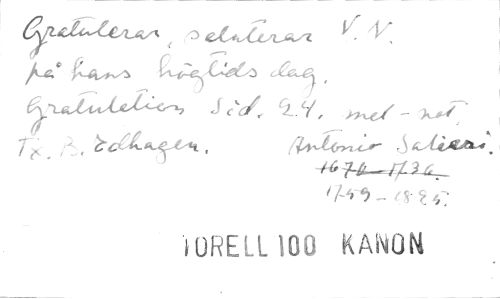 Gratulerar, saluterar V. N.
på hans högtids dag.
Gratulation Sid. 24. mel-not.
Tx. B. Edhagen. Antonio Salieri.
1670-1736.
1759-1825.
TORELL 100 KANON